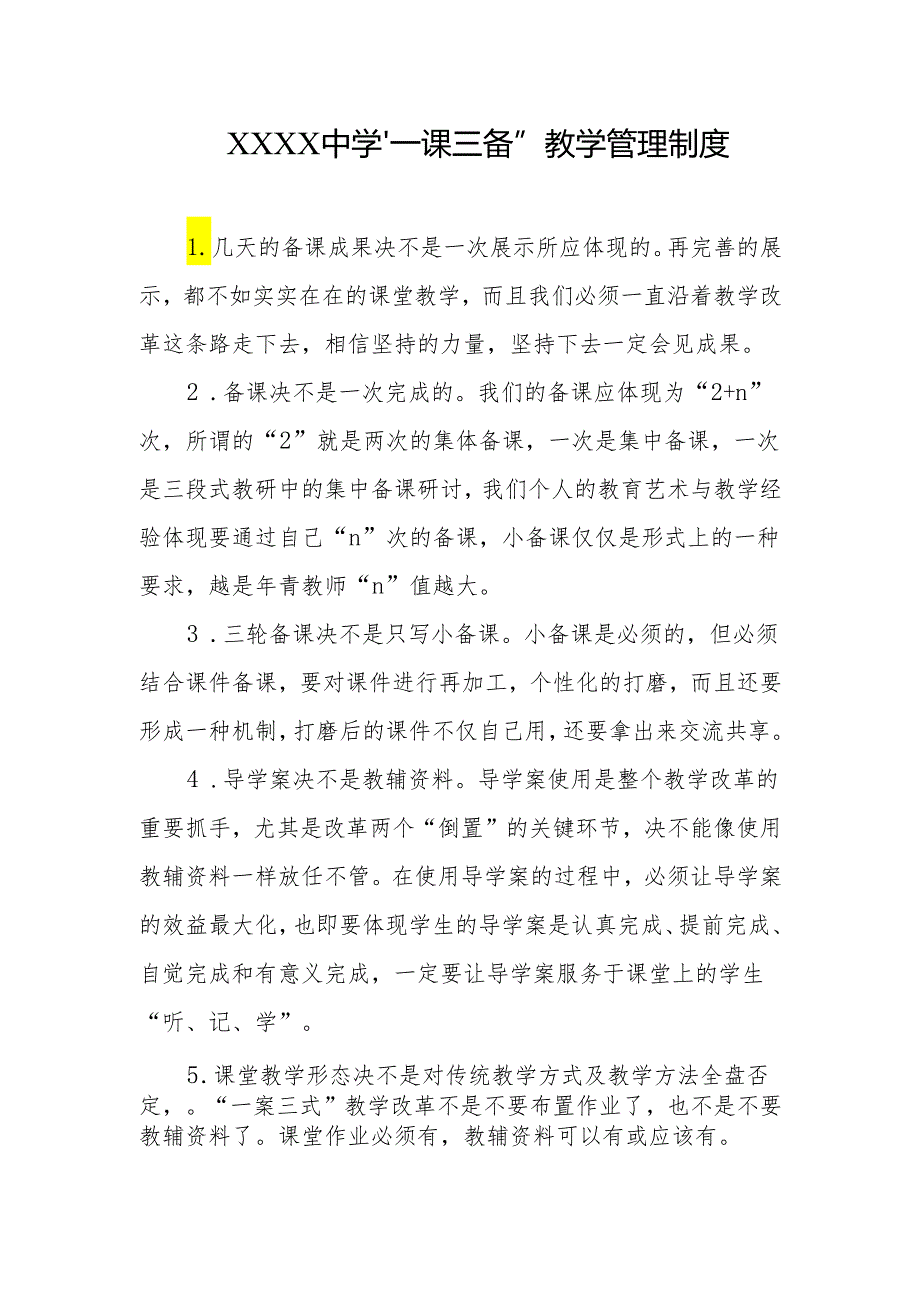 XXXX中学'一课三备”教学管理制度
1.几天的备课成果决不是一次展示所应体现的。再完善的展
示，都不如实实在在的课堂教学，而且我们必须一直沿着教学改
革这条路走下去，相信坚持的力量，坚持下去一定会见成果。
2 .备课决不是一次完成的。我们的备课应体现为“2+n”
次，所谓的“2”就是两次的集体备课，一次是集中备课，一次
是三段式教研中的集中备课研讨，我们个人的教育艺术与教学经
验体现要通过自己“n”次的备课，小备课仅仅是形式上的一种
要求，越是年青教师“n”值越大。
3 .三轮备课决不是只写小备课。小备课是必须的，但必须
结合课件备课，要对课件进行再加工，个性化的打磨，而且还要
形成一种机制，打磨后的课件不仅自己用，还要拿出来交流共享。
4 .导学案决不是教辅资料。导学案使用是整个教学改革的
重要抓手，尤其是改革两个“倒置”的关键环节，决不能像使用
教辅资料一样放任不管。在使用导学案的过程中，必须让导学案
的效益最大化，也即要体现学生的导学案是认真完成、提前完成、
自觉完成和有意义完成，一定要让导学案服务于课堂上的学生
“听、记、学”。
5.课堂教学形态决不是对传统教学方式及教学方法全盘否
定，。“一案三式”教学改革不是不要布置作业了，也不是不要
教辅资料了。课堂作业必须有，教辅资料可以有或应该有。